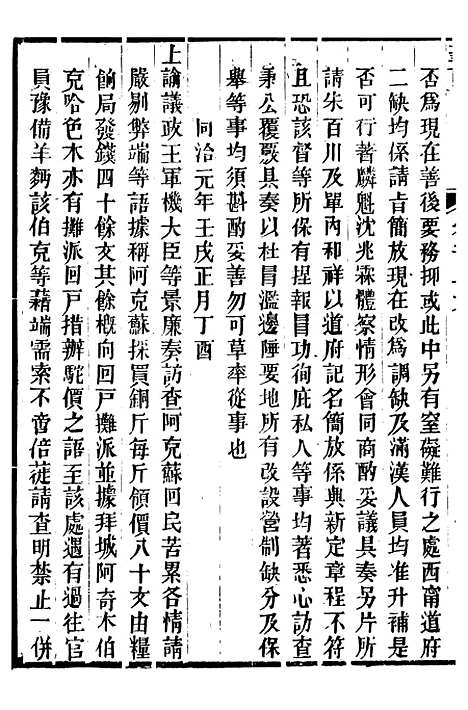 否爲現在善後要務抑或此中另有窒礙難行之處西甯道府
二缺均係請㫖簡放現在改爲調缺及滿漢人員均准升補是
否可行著麟魁沈兆霖體察情形會同商酌妥議具奏另片所
請朱百川及單內和祥以道府記名簡放係與新定章程不符
且恐該督等所保有捏報冒功徇庇私人等事均著悉心訪查
秉公覆覈具奏以杜冒濫邊陲要地所有改設營制缺分及保
舉等事均須斟酌妥善勿可草率從事也
同治元年壬戌正月丁酉
上諭議政王軍機大臣等景廉奏訪查阿克蘇回民苦累各情請
嚴剔弊端等語據稱阿克蘇採買銅斤每斤領價八十文由糧
餉局發錢四十餘文其餘概向回戶攤派並據拜城阿奇木伯
克哈色木亦有攤派回戶措辦駝價之語至該處遇有過往官
員豫備羊麪該伯克等藉端需索不啻倍蓰請查明禁止一併